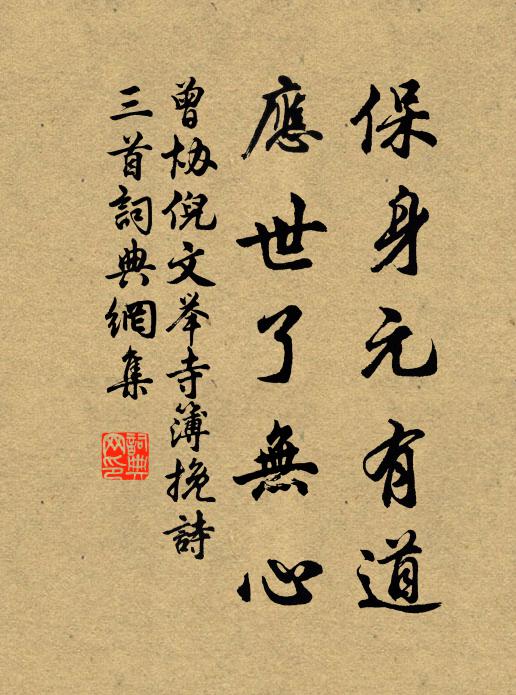 保身元有道
應世了無心
曾協倪文举寺簿挽詩
三首詞典網集
詞典網印